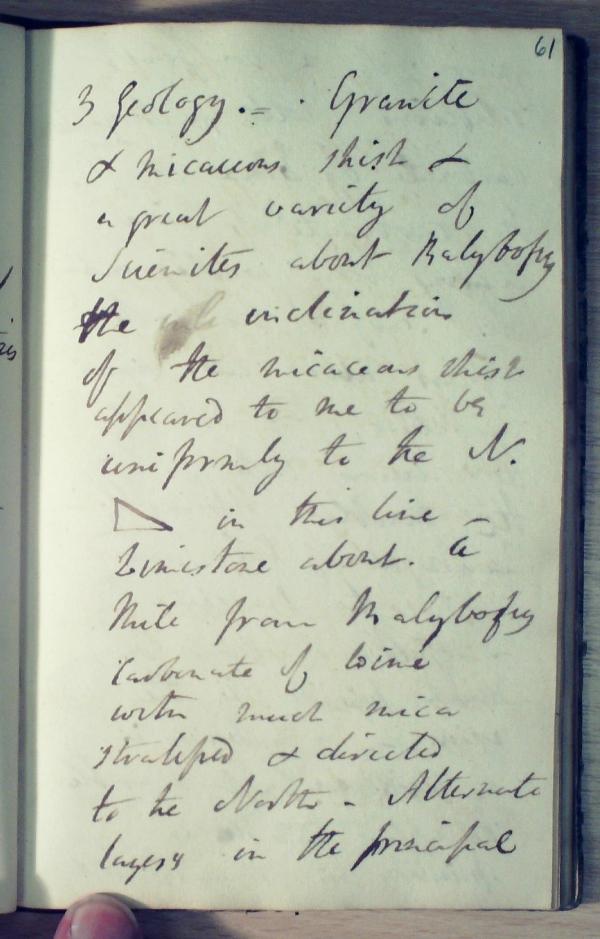 61
3 Geology. = · Granite
& micaceous shist &
a great variety of
Sienites about Balybofey
the inclination
of the micaceous shist
appeared to me to be
uniformly to the N.
in this line –
Limestone about. a
Mile from Balybofey
Carbonate of Lime
with much mica
stratified & directed
to the North – Alternate
layers in the principal